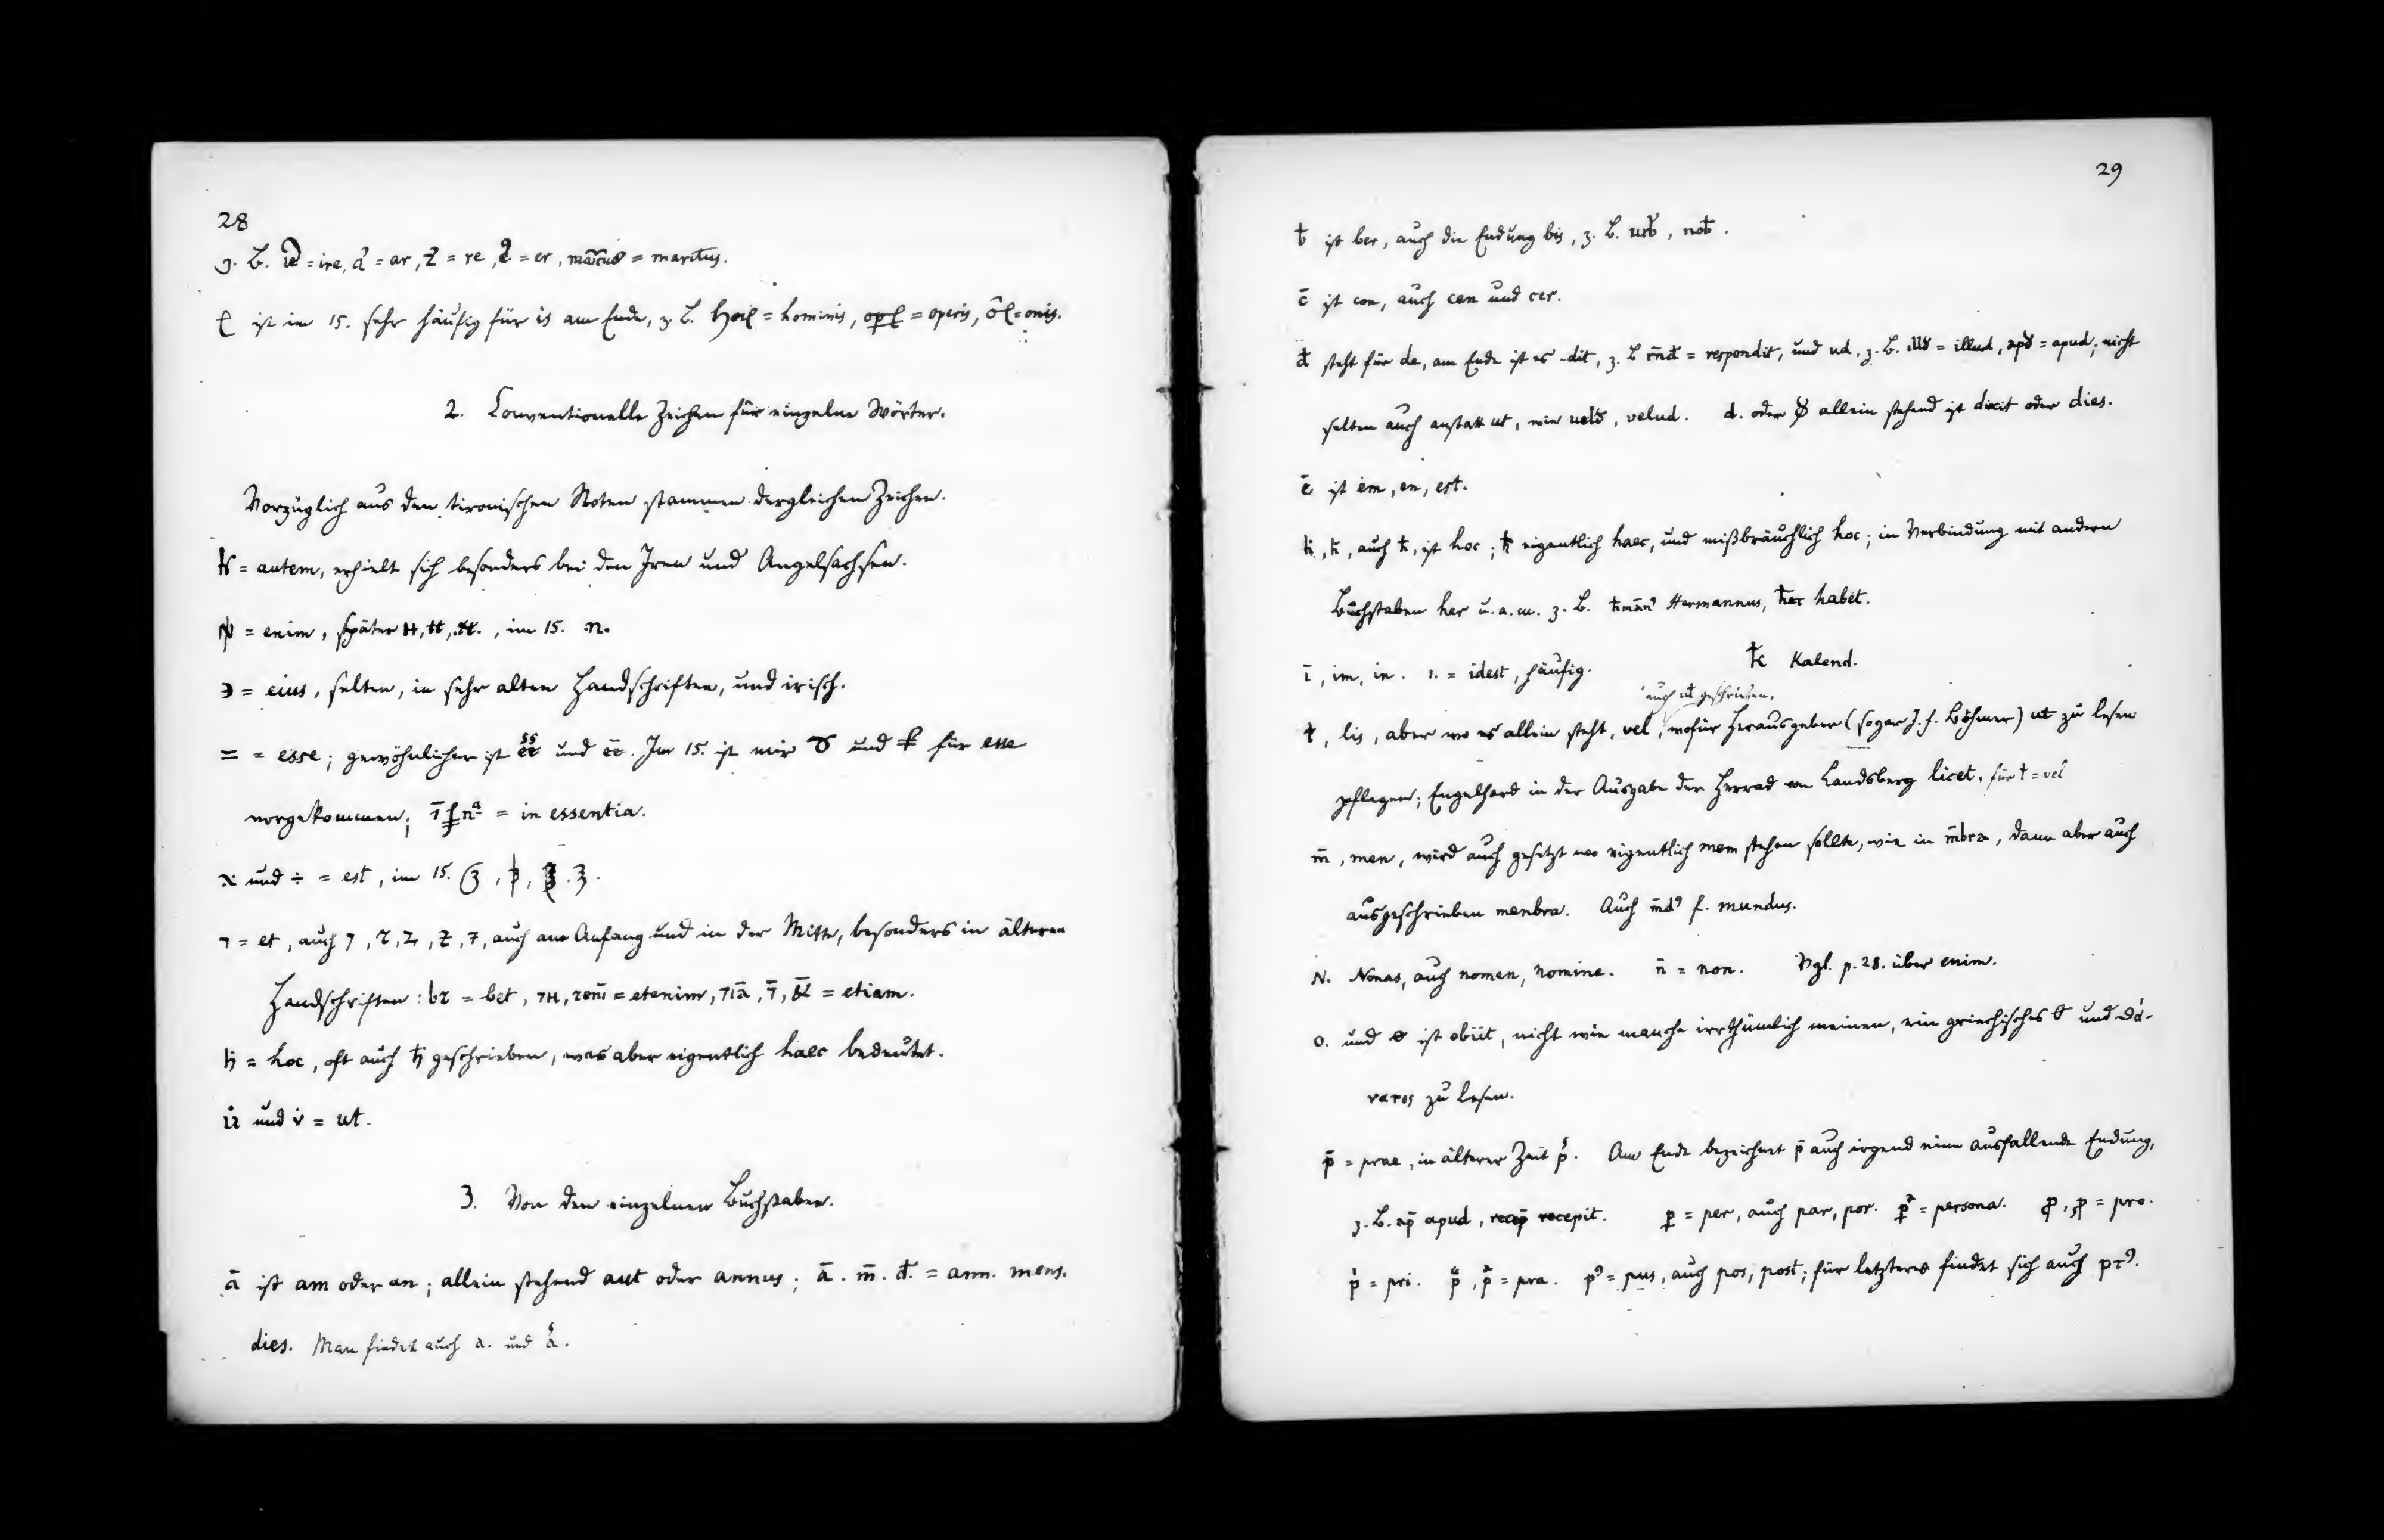 28
z. B. = ire, a = ar, = re, = er, = maritus.
ist im 15. sehr häufig für is am Ende, z. B. = hominis, = operis, = onis.
2. Conventionelle Zeichen für einzelne Wörter.
Vorzüglich aus den tironischen Noten stammen dergleichen Zeichen.
= autem, erhielt sich besonders bei den Iren und Angelsachsen.
= enim, später , im 15. .n.
ɔ = eius, selten, in sehr alten Handschriften, und irisch.
= = esse; gewöhnlicher ist und ēē. Im 15. ist mir und für esse
vorgekommen; = in essentia.
und ÷ = est, im 15.
⁊ = et, auch , auch am Anfang und in der Mitte, besonders in älteren
Handschriften: = bet, = etenim, = etiam.
= hoc, oft auch ħ geschrieben, was aber eigentlich haec bedeutet.
und = ut.
3. Von den einzelnen Buchstaben.
ā ist am oder an; allein stehend aut oder annus; ā. m̄. đ. = ann. mens.
dies. Man findet auch a. und
29
ƀ ist ber, auch die Endung bis, z. B. urƀ, noƀ.
c̄ ist con, auch cen und cer.
đ steht für de, am Ende ist es -dit, z. B. = respondit, und ud, z. B. = illud, = apud; nicht
selten auch anstatt ut, wie , velud. d. oder allein stehend ist dixit oder dies.
ē ist em, en, est.
auch ħ, ist hoc; ħ eigentlich haec, und mißbräuchlich hoc; in Verbindung mit andern
Buchstaben her u. a. m. z. B. Hermannus, habet.
ī, im, in. ı. = idest, häufig. Kalend.
auch geschrieben.
ł, lis, aber wo es allein steht, vel, wofür Herausgeber (sogar J. F. Böhmer) ut zu lesen
pflegen; Engelhard in der Ausgabe der Herrad von Landsberg licet, für ł = vel
m̄, men, wird auch gesetzt wo eigentlich mem stehen sollte, wie in m̄bra, dann aber auch
ausgeschrieben menbra. Auch m̄d⁹ f. mundus.
N. Nonas, auch nomen, nomine. n̄ = non. Vgl. p. 28. über enim.
o. und ist obiit, nicht wie manche irrthümlich meinen, ein griechisches θ und θά-
νατος zu lesen.
p̄ = prae, in älterer Zeit . Am Ende bezeichnet p̄ auch irgend eine ausfallende Endung,
z. B. ap̄ apud, recep̄ recepit. ꝑ = per, auch par, por. = persona. ꝓ, = pro.
= pri. = pra. p⁹ = pus, auch pos, post; für letzteres findet sich auch